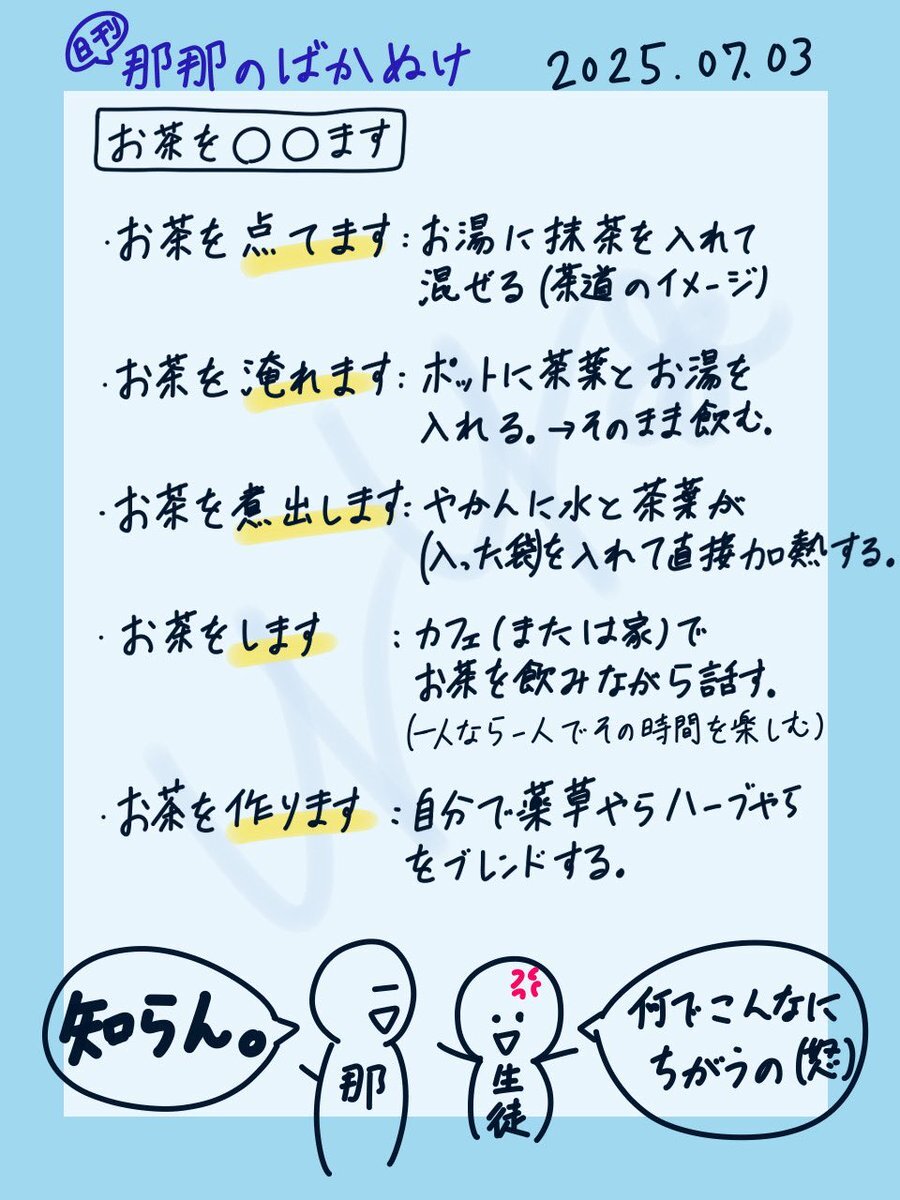 日刊
那那のばかぬけ 2025.07.03
お茶を○○ます
・お茶を点てます：お湯に抹茶を入れて
混ぜる(茶道のイメージ)
・お茶を淹れます：ポットに茶葉とお湯を
入れる。→そのまま飲む。
・お茶を煮出します：やかんに水と茶葉が
(入った袋)を入れて直接加熱する。
・お茶をします：カフェ(または家)で
お茶を飲みながら話す。
(一人なら一人でその時間を楽しむ)
・お茶を作ります：自分で薬草やらハーブやら
をブレンドする。
知らん。
那
生徒
何でこんなに
ちがうの(怒)